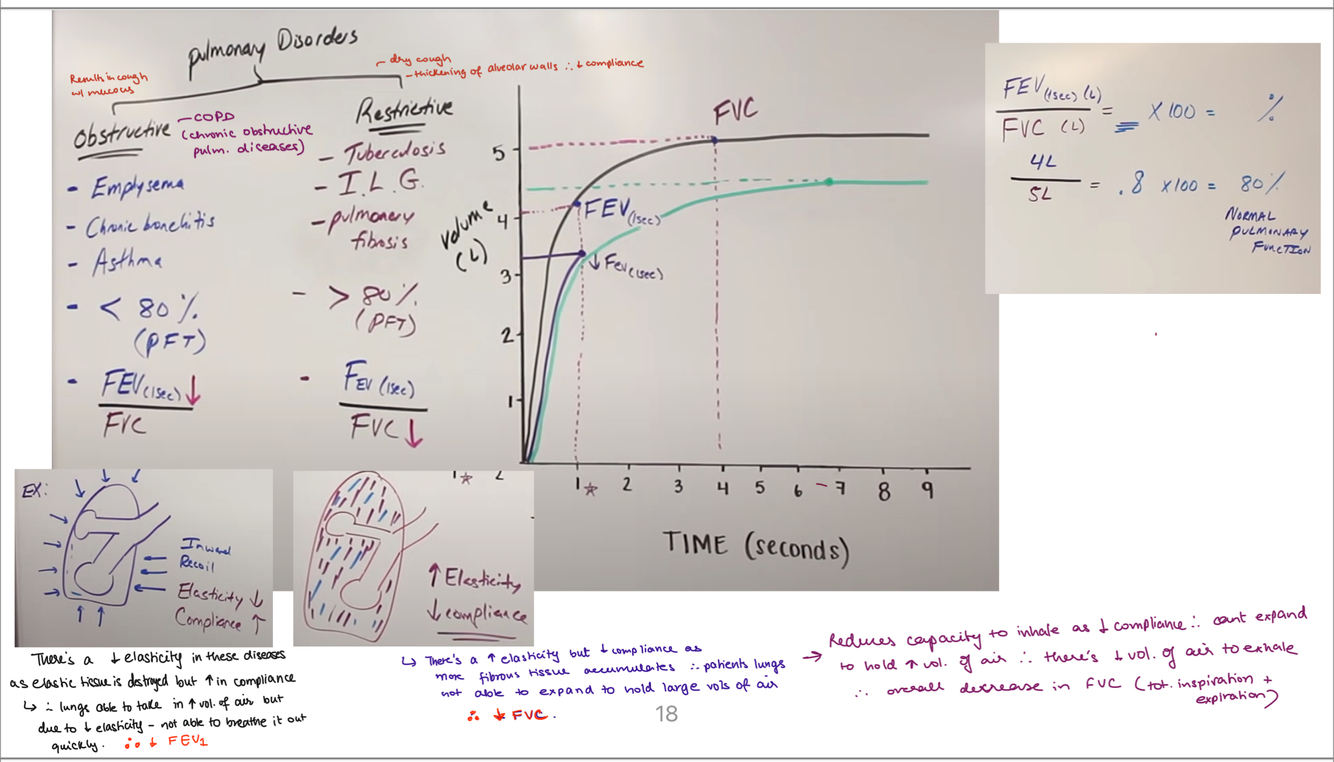 pulmonary Disorders
Results in cough
w/ mucous
- dry cough
- thickening of alveolar walls ∴ ↓ compliance
Obstructive
- COPD
(chronic obstructive
pulm. diseases)
- Emplysema
- Chronic bonchitis
- Asthma
- < 80%
(PFT)
- FEV(1sec) ↓
FVC
Restrictive
- Tuberculosis
- I.L.G.
- pulmonary
fibrosis
- > 80%
(PFT)
- FEV (1sec)
FVC ↓
Volume
(L)
5
4
3
2
1
FVC
FEV(1sec)
↓ FEV(1sec)
1 2 3 4 5 6 - 7 8 9
TIME (seconds)
FEV(1sec) (L)
FVC (L)
= _ X 100 = %
4L
5L
= .8 X100 = 80%
NORMAL
PULMONARY
FUNCTION
EX:
Inward
Recoil
Elasticity ↓
Compliance ↑
2
↑ Elasticity
↓ compliance
There's a ↓ elasticity in these diseases
as elastic tissue is distroyed but ↑ in compliance
↳ ∴ lungs able to take in ↑ vol. of air but
due to ↓ elasticity - not able to breathe it out
quickly. ∴ ↓ FEV1
↳ There's a ↑ elasticity but ↓ compliance as
more fibrous tissue accumulates ∴ patients lungs
not able to expand to hold large vols of air
∴ ↓ FVC.
18
→ Reduces capacity to inhale as ↓ compliance ∴ cant expand
to hold ↑ vol. of air ∴ there's ↓ vol. of air to exhale
∴ overall decrease in FVC (tot. inspiration +
expiration)